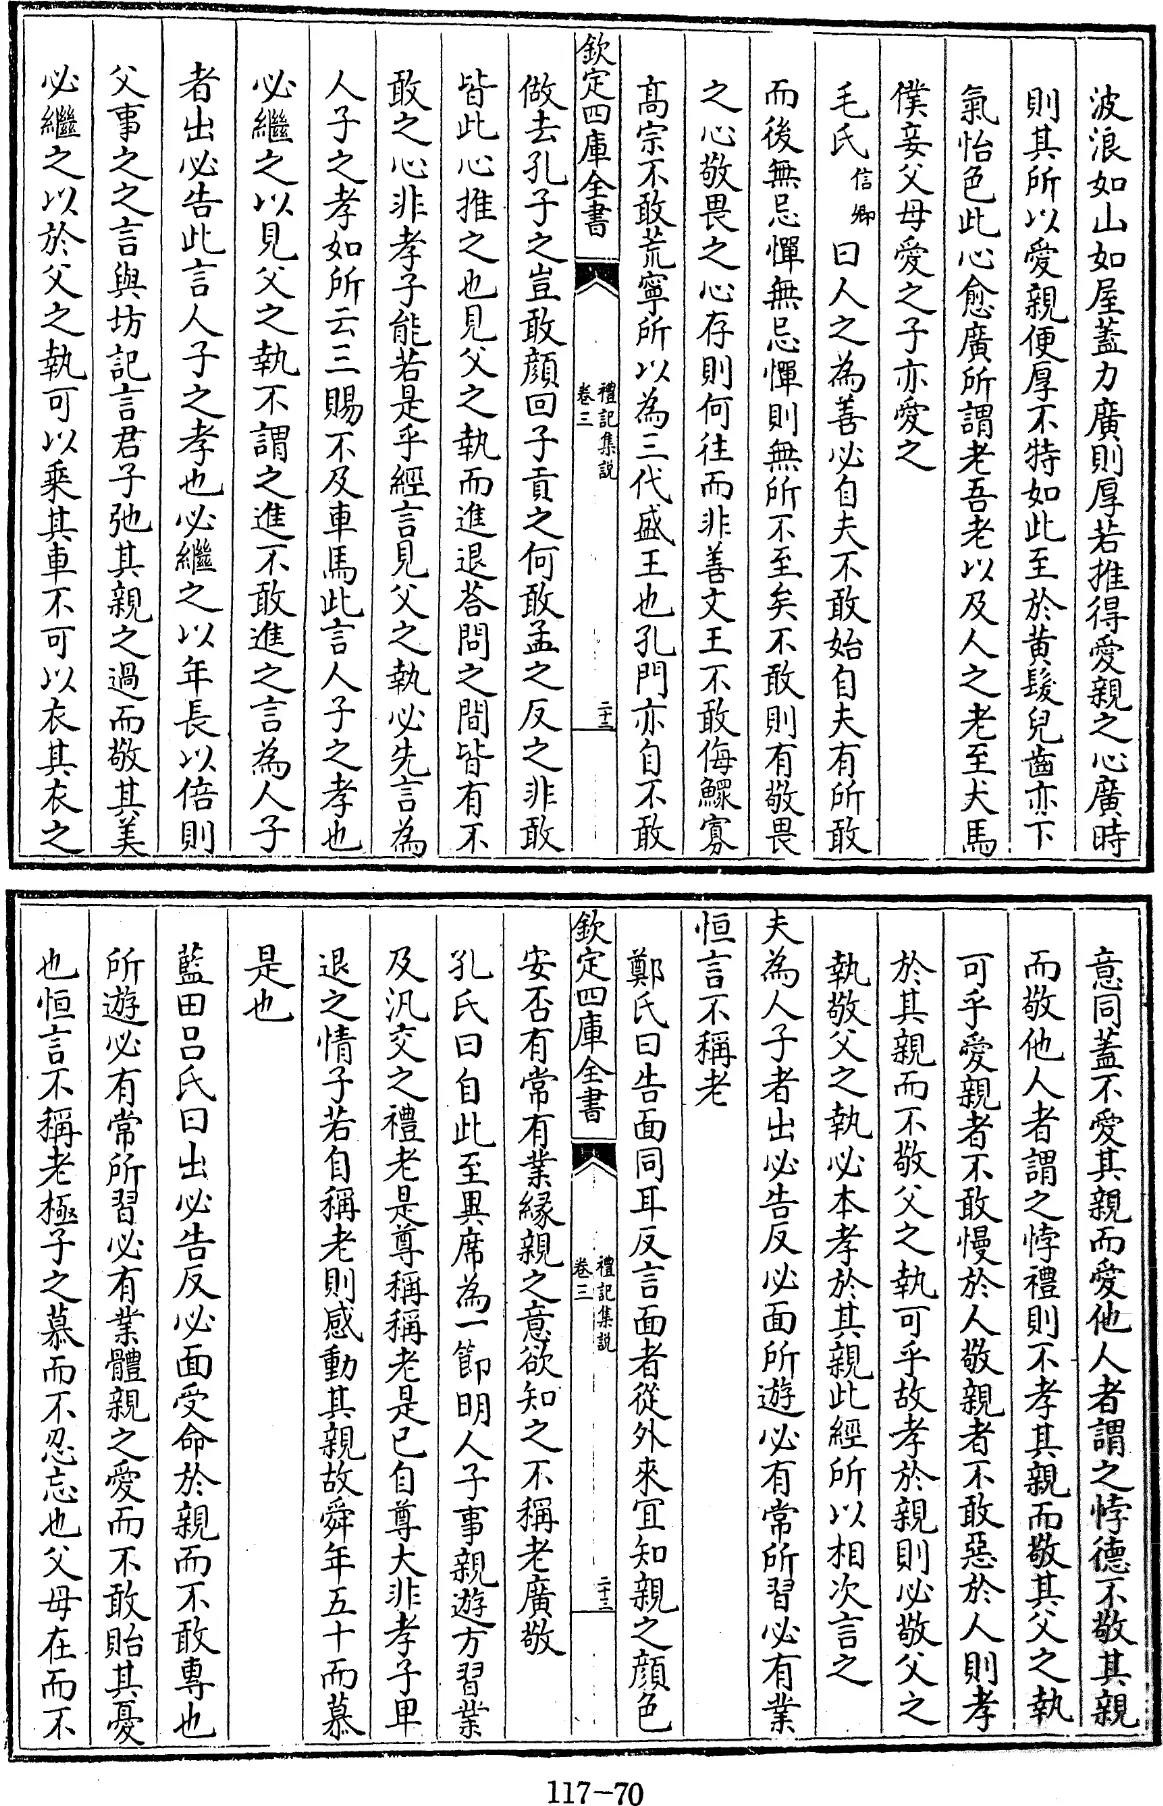 波浪如山如屋蓋力廣則厚若推得愛親之心廣時
則其所以愛親便厚不特如此至於黄髮兒齒亦下
氣怡色此心愈廣所謂老吾老以及人之老至犬馬
僕妾父母愛之子亦愛之
毛氏信卿曰人之為善必自夫不敢始自夫有所敢
而後無忌憚無忌憚則無所不至矣不敢則有敬畏
之心敬畏之心存則何往而非善文王不敢侮鰥寡
高宗不敢荒寧所以為三代盛王也孔門亦自不敢
欽定四庫全書
禮記集説
卷三
二十三
做去孔子之豈敢顔回子貢之何敢孟之反之非敢
皆此心推之也見父之執而進退答問之間皆有不
敢之心非孝子能若是乎經言見父之執必先言為
人子之孝如所云三賜不及車馬此言人子之孝也
必繼之以見父之執不謂之進不敢進之言為人子
者出必告此言人子之孝也必繼之以年長以倍則
父事之之言與坊記言君子弛其親之過而敬其美
必繼之以於父之執可以乗其車不可以衣其衣之
意同蓋不愛其親而愛他人者謂之悖德不敬其親
而敬他人者謂之悖禮則不孝其親而敬其父之執
可乎愛親者不敢慢於人敬親者不敢惡於人則孝
於其親而不敬父之執可乎故孝於親則必敬父之
執敬父之執必本孝於其親此經所以相次言之
夫為人子者出必告反必面所遊必有常所習必有業
恒言不稱老
鄭氏曰告面同耳反言面者從外來宜知親之顔色
欽定四庫全書
禮記集説
卷三
二十三
安否有常有業縁親之意欲知之不稱老廣敬
孔氏曰自此至異席為一節明人子事親遊方習業
及汎交之禮老是尊稱稱老是已自尊大非孝子卑
退之情子若自稱老則感動其親故舜年五十而慕
是也
藍田呂氏曰出必告反必面受命於親而不敢專也
所遊必有常所習必有業體親之愛而不敢貽其憂
也恒言不稱老極子之慕而不忍忘也父母在而不
117-70